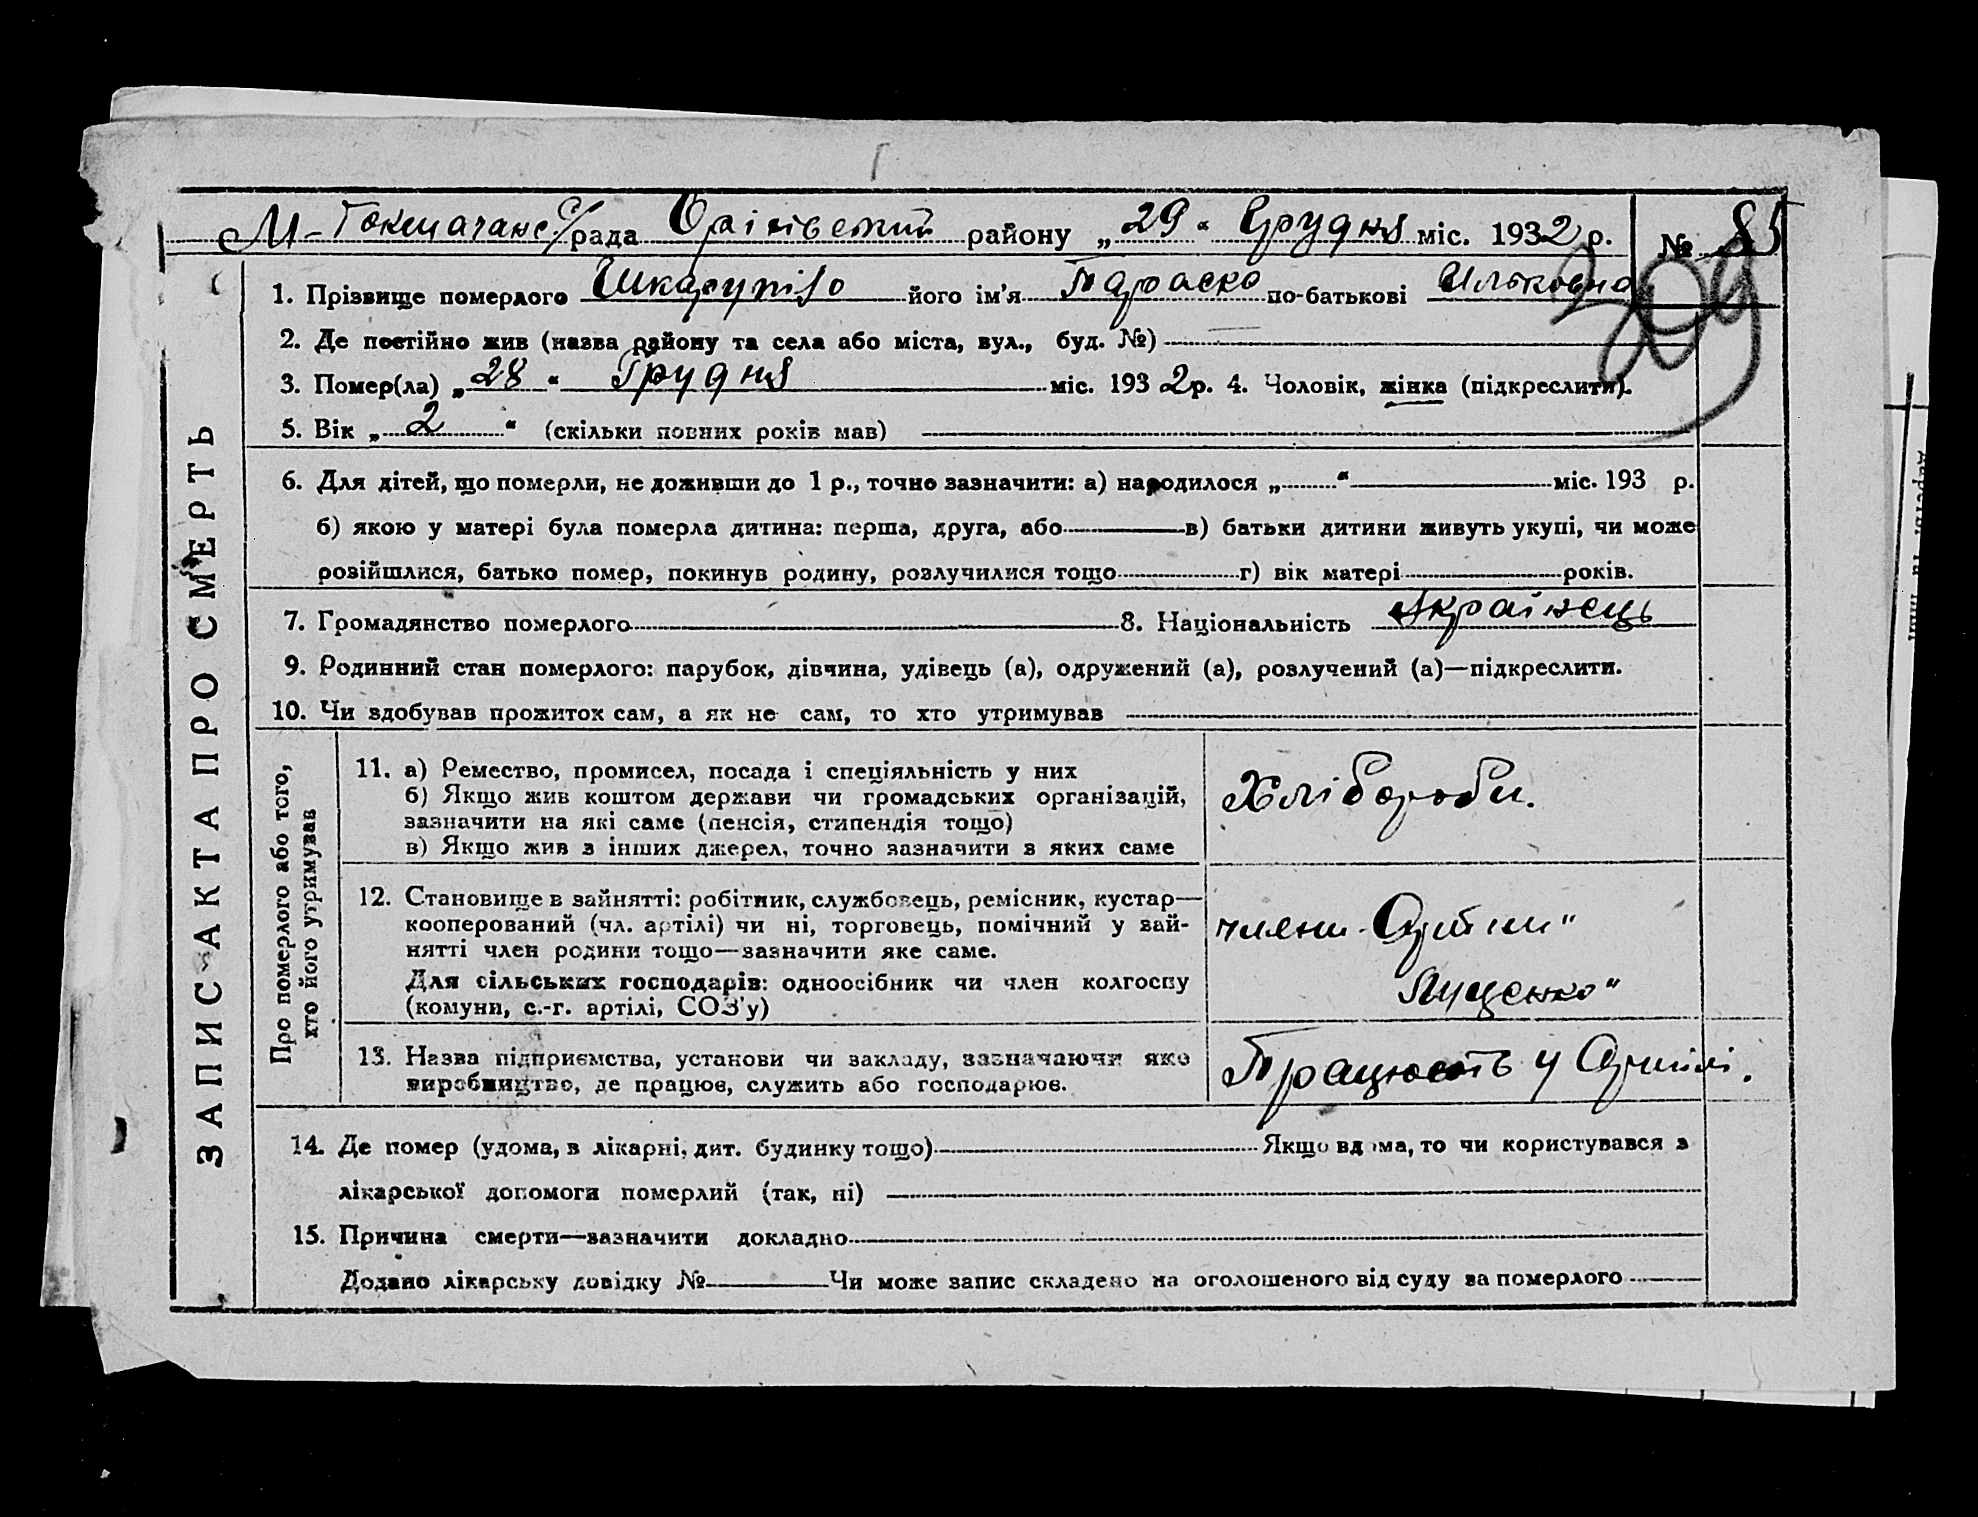 М-Токмачанс. с/рада Оріхівский району „29“ Грудня міс. 1932 р. № 85
209
1. Прізвище померлого Шкарупіло його ім'я Параска по-батькові Ильковна
2. Де постійно жив (назва району та села або міста, вул., буд. №)
3. Помер(ла) „28“ Грудня міс. 1932 р. 4. Чоловік, жінка (підкреслити).
5. Вік „2“ (скільки повних років мав)
6. Для дітей, що померли, не доживши до 1 р., точно зазначити: а) народилося „ “ міс. 193 р.
б) якою у матері була померла дитина: перша, друга, або в) батьки дитини живуть укупі, чи може
розійшлися, батько помер, покинув родину, розлучилися тощо г) вік матері років.
7. Громадянство померлого 8. Національність Українець
9. Родинний стан померлого: парубок, дівчина, удівець (а), одружений (а), розлучений (а)—підкреслити.
10. Чи здобував прожиток сам, а як не сам, то хто утримував
ЗАПИС АКТА ПРО СМЕРТЬ
Про померлого або того,
хто його утримував
11. а) Ремество, промисел, посада і спеціяльність у них
б) Якщо жив коштом держави чи громадських організацій,
зазначити на які саме (пенсія, стипендія тощо)
в) Якщо жив з інших джерел, точно зазначити з яких саме
Хлібороби.
12. Становище в зайнятті: робітник, службовець, ремісник, кустар—
кооперований (чл. артілі) чи ні, торговець, помічний у зай-
нятті член родини тощо—зазначити яке саме.
Для сільських господарів: одноосібник чи член колгоспу
(комуни, с.-г. артілі, СОЗ'у)
члени Артіли"
Луценко"
13. Назва підприємства, установи чи закладу, зазначаючи яке
виробництво, де працює, служить або господарює.
Працюють у Артілі.
14. Де помер (удома, в лікарні, дит. будинку тощо) Якщо вдома, то чи користувався з
лікарської допомоги померлий (так, ні)
15. Причина смерти—зазначити докладно
Додано лікарську довідку № Чи може запис складено на оголошеного від суду за померлого